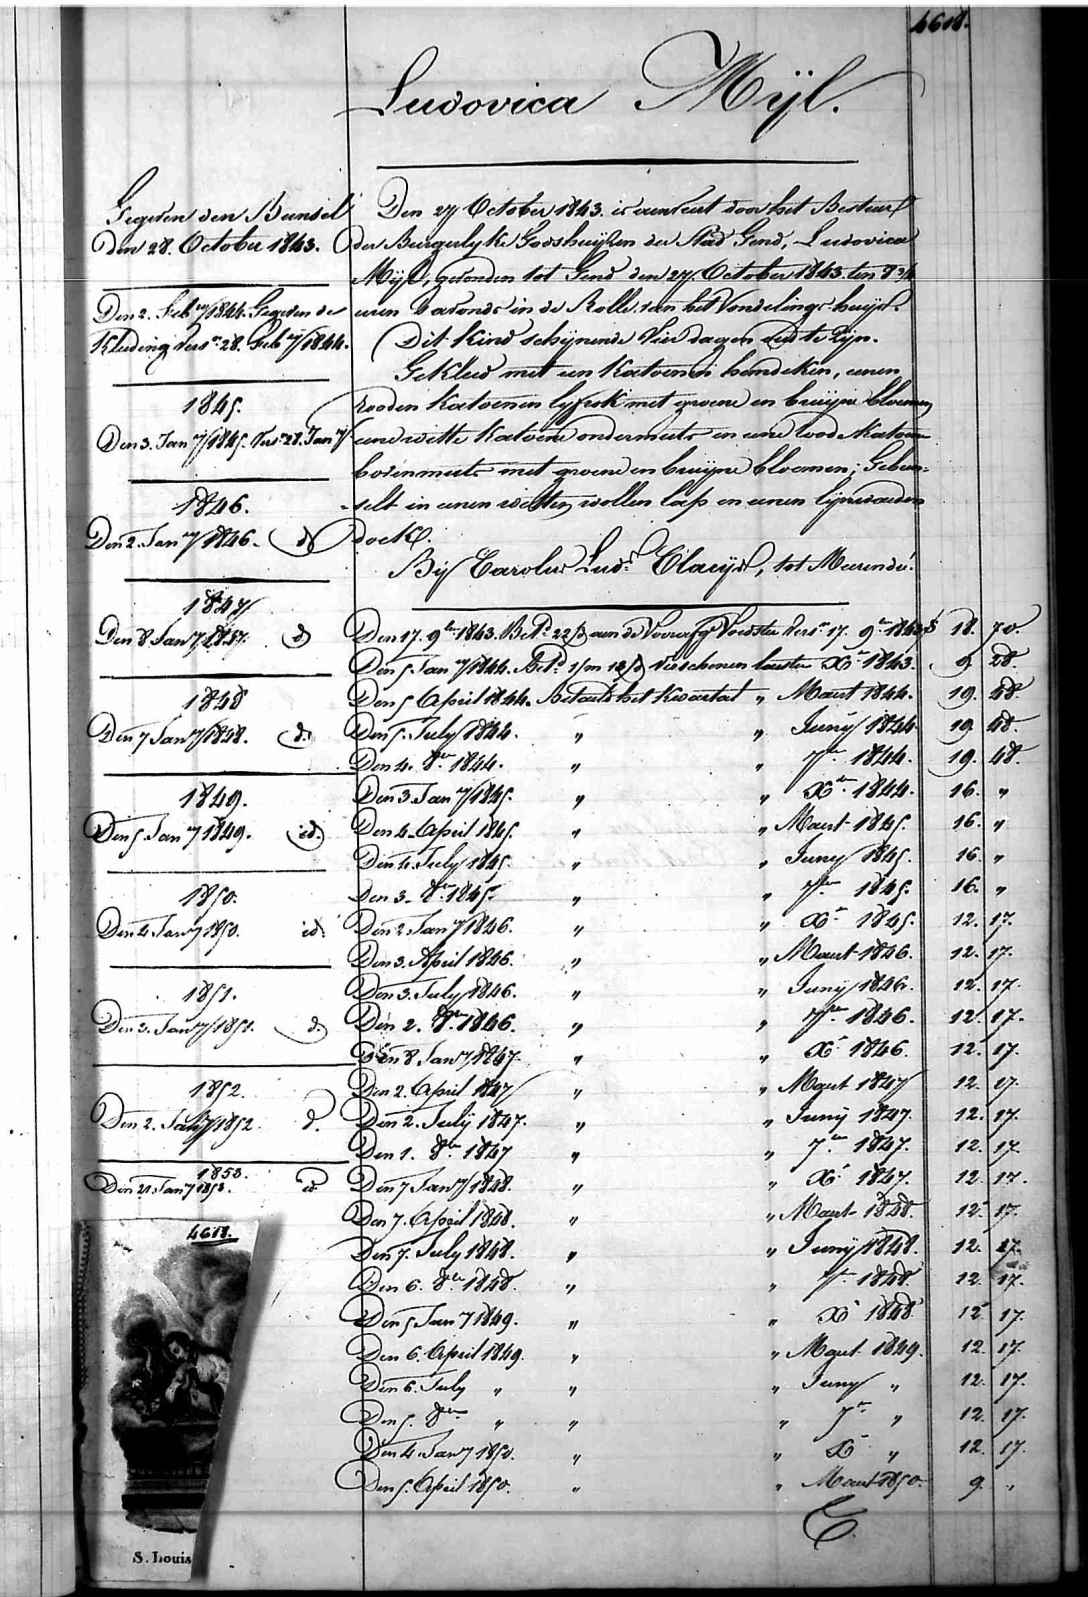 4618.
Ludovica Mÿl.
Gegeven den Bunsel
den 28. October 1843.
Den 2. Feby 1844. Gegeven de
Kleding Vers. 28. Feby 1844.
1845.
Den 3. Jany 1845. Vers. 28. Jany
1846.
Den 2. Jany 1846. d
1847
Den 8 Jany 1847. d
1848
Den 7 Jany 1848. d.
1849.
Den 5. Jany 1849. id.
1850.
Den 4. Jany 1850. id.
1851.
Den 3. Jany 1851. d.
1852.
Den 2. Jany 1852 d.
1853.
Den 21. Jany 1853. id.
4618.
S. Louis
Den 27 October 1843. is aenveert door het Bestuur
der Burgerlyke Godshuijzen der Stad Gend, Ludovica
Mÿl, gevonden tot Gend den 27. October 1843. ten 8 3/4
uren 'savonds in de Rolle van het Vondelings-huijs.
Dit kind schijnende vier dagen oud te zijn.
Gekleed met een katoenen hemdeken, eenen
rooden katoenen lyfrok met groene en bruijne bloemen,
eene witte katoene ondermuts en eene roode katoene
bovenmuts met groene en bruijne bloemen; Gebun-
selt in eenen witten wollen lap en eenen lijnwaeden
doek.
By Carolus Lud. Claeijs, tot Meerendré.
Den 17. 9ber 1843. Bet. 22/ aen de Voorafge Voedster Vers. 17. 9ber 1843 18. 70.
Den 5 Jany 1844. Bet. 1/m 12/ verschenen laesten Xber 1843. 9. 28.
Den 5 April 1844. Betaeld het Kwartael " Maert 1844. 19. 48.
Den 5. July 1844. " " Juny 1844 19. 48.
Den 4. 8ber 1844. " " 7ber 1844. 19. 48.
Den 3 Jany 1845. " " Xber 1844. 16. "
Den 4. April 1845. " " Maert 1845. 16. "
Den 4. July 1845. " " Juny 1845. 16. "
Den 3. 8ber 1845. " " 7ber 1845. 16. "
Den 2 Jany 1846. " " Xber 1845. 12. 17.
Den 3. April 1846. " " Maert 1846. 12. 17.
Den 3. July 1846. " " Juny 1846. 12. 17.
Den 2. 8ber 1846. " " 7ber 1846. 12. 17.
Den 8 Jany 1847. " " Xber 1846. 12. 17.
Den 2. April 1847 " " Maert 1847 12. 17.
Den 2. July 1847. " " Juny 1847. 12. 17.
Den 1. 8ber 1847 " " 7ber 1847. 12. 17.
Den 7 Jany 1848. " " Xber 1847. 12. 17.
Den 7. April 1848. " " Maert 1848. 12. 17.
Den 7. July 1848. " " Juny 1848. 12. 17.
Den 6. 8ber 1848. " " 7ber 1848. 12. 17.
Den 5 Jany 1849. " " Xber 1848. 12 17.
Den 6. April 1849. " " Maert 1849. 12. 17.
Den 6. July " " " Juny " 12. 17.
Den 5. 8ber " " " 7ber " 12. 17.
Den 4. Jany 1850. " " Xber " 12. 17.
Den 5. April 1850. " " Maert 1850. 9. "